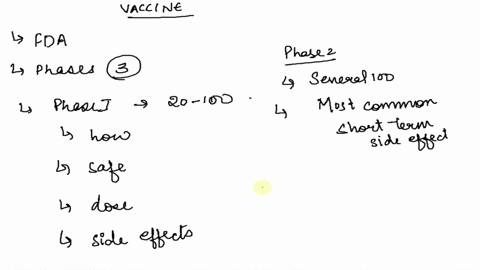 VACCINE
↳ FDA
↳ Phases ③
↳ Phase I → 20-100
↳ how
↳ safe
↳ dose
↳ side effects
Phase 2
↳ Several 100
↳ Most common
short term
side effect